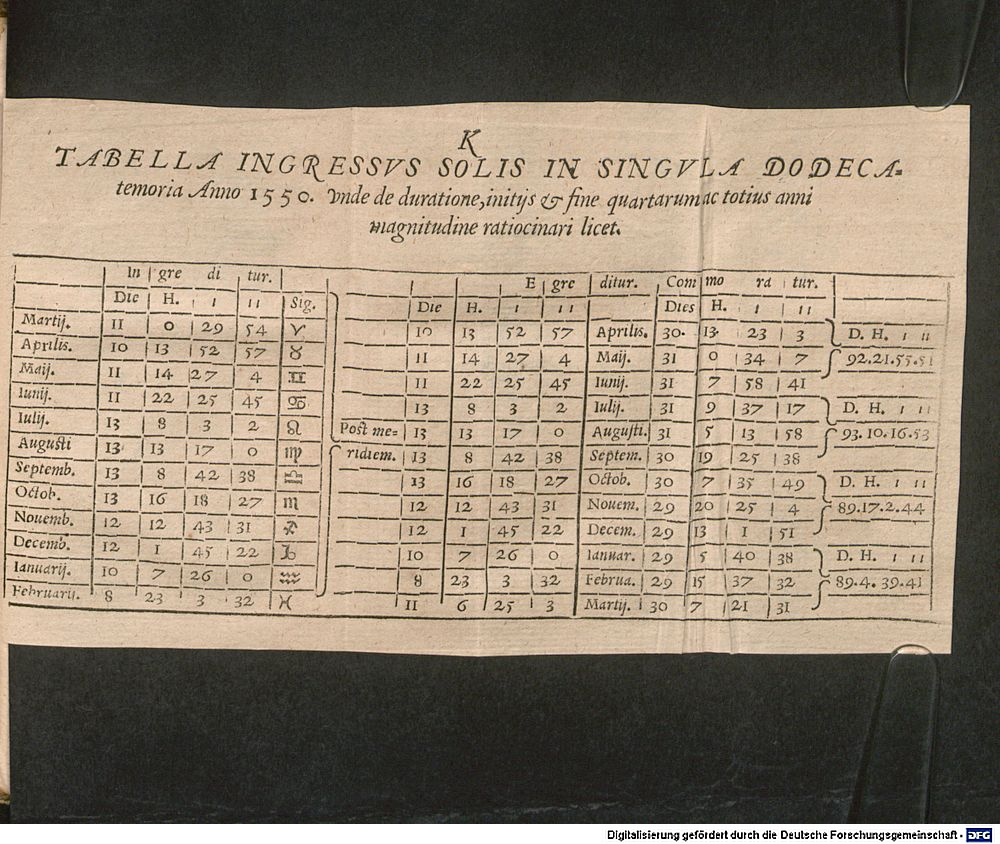 K
TABELLA INGRESSVS SOLIS IN SINGVLA DODECA=
temoria Anno 1550. Vnde de duratione, initijs & fine quartarum ac totius anni
magnitudine ratiocinari licet.
In gre di tur. E gre ditur. Com mo ra tur.
Die H. ı ıı Sig. Die H. ı ıı Dies H. ı ıı
Martij. 11 0 29 54 ♈ 10 13 52 57 Aprilis. 30. 13 23 3 D. H. ı ıı
Aprilis. 10 13 52 57 ♉ 11 14 27 4 Maij. 31 0 34 7 92.21.55.51
Maij. 11 14 27 4 ♊ 11 22 25 45 Iunij. 31 7 58 41
Iunij. 11 22 25 45 ♋ 13 8 3 2 Iulij. 31 9 37 17 D. H. ı ıı
Iulij. 13 8 3 2 ♌ Post me= 13 13 17 0 Augusti. 31 5 13 58 93.10.16.53
Augusti 13 13 17 0 ♍ ridiem. 13 8 42 38 Septem. 30 19 25 38
Septemb. 13 8 42 38 ♎ 13 16 18 27 Octob. 30 7 35 49 D. H. ı ıı
Octob. 13 16 18 27 ♏ 12 12 43 31 Nouem. 29 20 25 4 89.17.2.44
Nouemb. 12 12 43 31 ♐ 12 1 45 22 Decem. 29 13 1 51
Decemb. 12 1 45 22 ♑ 10 7 26 0 Ianuar. 29 5 40 38 D. H. ı ıı
Ianuarij. 10 7 26 0 ♒ 8 23 3 32 Februa. 29 15 37 32 89.4.39.41
Februarij. 8 23 3 32 ♓ 11 6 25 3 Martij. 30 7 21 31
Digitalisierung gefördert durch die Deutsche Forschungsgemeinschaft - DFG